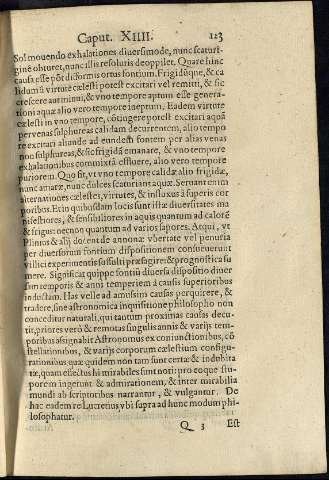 Caput. XIIII. 123
Sol mouendo exhalationes diuersimode, nunc scaturi-
ginē obturet, nunc illis resolutis deoppilet. Quare hinc
causa esse pōt difformis ortus fontium. Frigidūque, & ca
lidum à virtute cælesti potest excitari vel remitti, & sic
crescere aut minui, & vno tempore aptum esse genera-
tioni aquæ alio vero tempore ineptum. Eadem virtute
cælesti in vno tempore, cōtingere potest excitari aquā
per venas sulphureas calidam decurrentem, alio tempo
re excitari aliande ad eundem fontem per alias venas
non sulphureas, & sic frigidā emanare, & vno tempore
exhalationibus commixtā effluere, alio vero tempore
puriorem. Quo fit, vt vno tempore calidæ alio frigidæ,
nunc amaræ, nunc dulces scaturiant aquæ. Seruant enim
alternationes cælestes, virtutes, & influxus à superis cor
poribus. Et in quibusdam locis sunt istæ diuersitates ma
nifestiores, & sensibiliores in aquis quantum ad calorē
& frigus: necnon quantum ad varios sapores. Atqui, vt
Plinius & alij docent de annonæ vbertate vel penuria
per diuersorum fontium dispositionem consueuerunt
villici experimentis suffulti præsagire: & prognostica su
mere. Significat quippe fontiū diuersa dispositio diuer
sum temporis & anni temperiem à causis superioribus
industam. Has velle ad amussim causas perquirere, &
tradere, sine astronomica inquisitione philosopho non
conceditur naturali, qui tantùm proximas causas decu-
tit, priores verò & remotas singulis annis & varijs tem-
poribus assignabit Astronomus ex coniunctionibus, cō
stellationibus, & varijs corporum cælestium configu-
rationibus quæ quidem non tam sunt certæ & indubita
tæ, quam effectus hi mirabiles sunt noti: pro eoque stu-
porem ingerunt & admirationem, & inter mirabilia
mundi ab scriptoribus narrantur, & vulgantur. De
hac eadem re Lucretius vbi supra ad hunc modum phi-
losophatur.
Q 3 Est